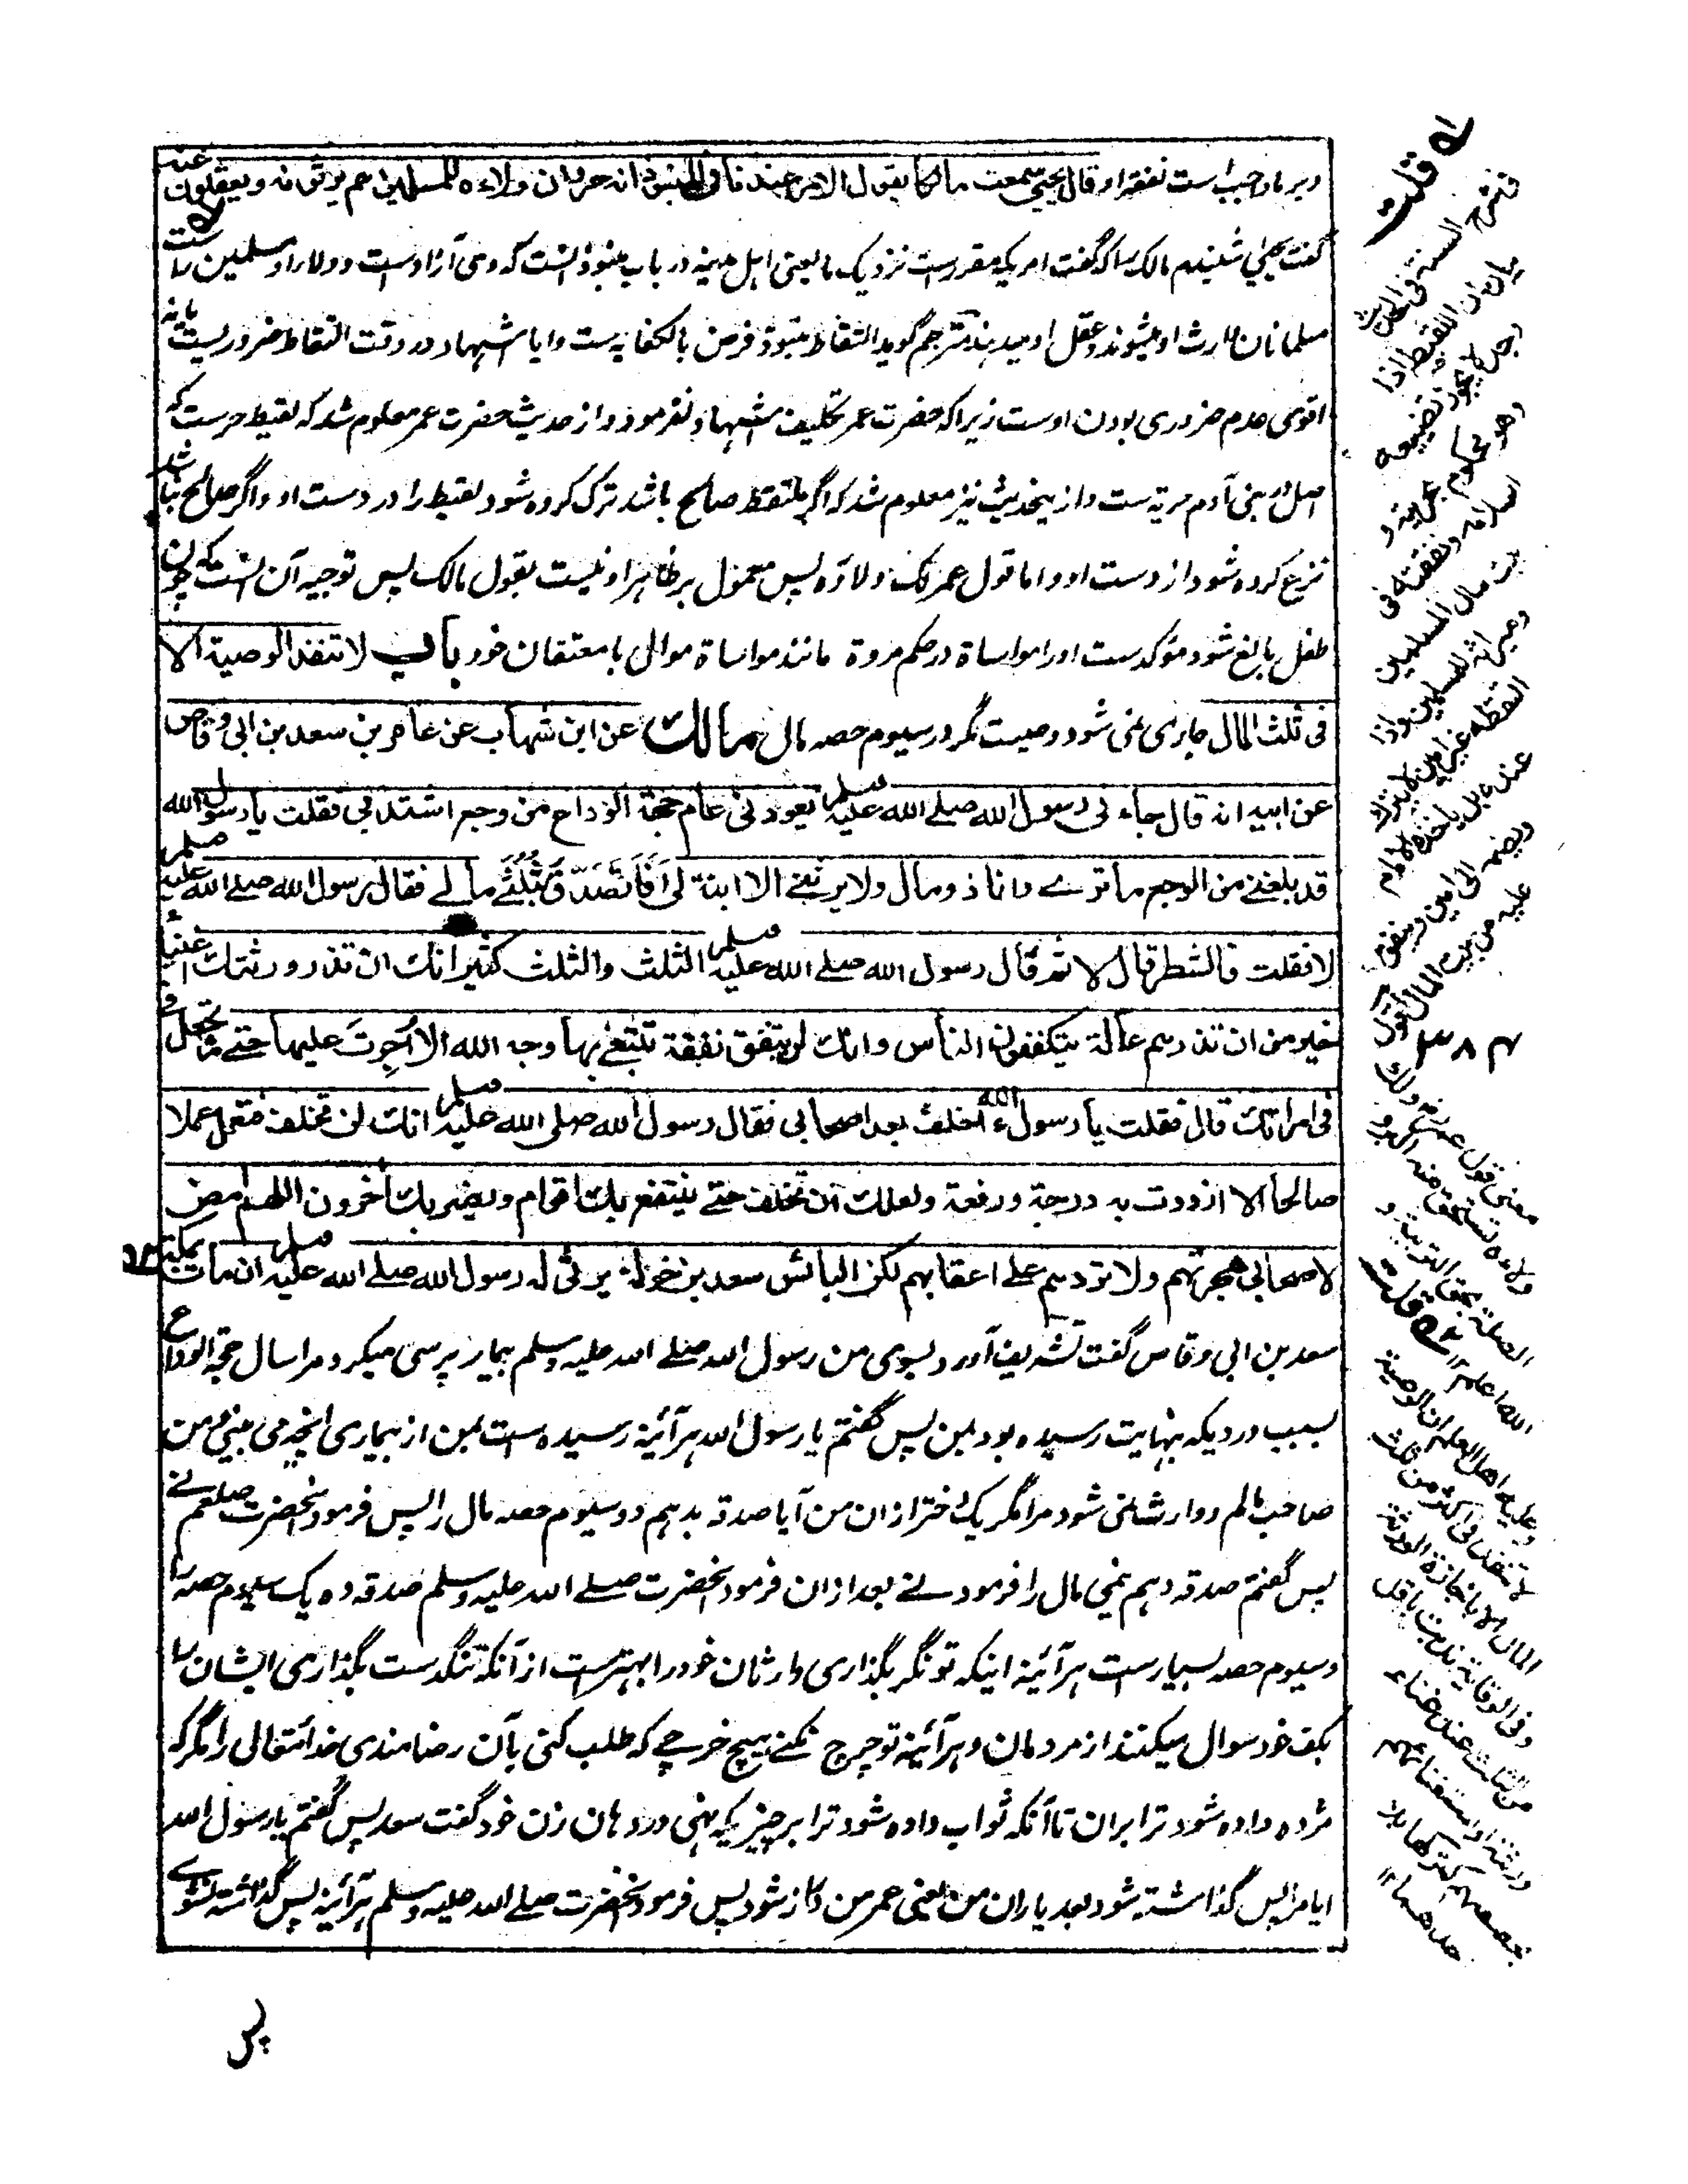 وبر ما واجب است نفقه او قال يحيى سمعت مالكا يقول الامر عندنا فى المنبوذ انه حر وان ولاءه للمسلمين هم يرثونه ويعقلون عنه
گفت يحيى شنيدم مالك را كه گفت امريكه مقررست نزديك ما يعنى اهل مدينه در باب منبوذ انست كه وى آزادست و ولا او مسلمين راست
مسلمانان وارث او ميشوند وعقل او ميدهند مترجم گويد التقاط منبوذ فرض بالكفايه ست وايا اشهاد در وقت التقاط ضروريست يا نه
اقوى عدم ضرورى بودن اوست زيرا كه حضرت عمر تكليف اشهاد نفرمود واز حديث حضرت عمر معلوم شد كه لقيط حرست كه
اصل در بنى آدم حريت ست وازينحديث نيز معلوم شد كه اگر ملتقط صالح باشد ترك كرده شود لقيط را در دست او واگر صالح نباشد
نزع كرده شود از دست او واما قول عمر لك ولاؤه پس محمول بر ظاهر او نيست بقول مالك پس توجيه آن انست كه چون
طفل بالغ شود مؤكدست اورا مواساة در حكم مروة مانند مواساة موالى با معتقان خود باب لا تنفذ الوصية الا
فى ثلث المال جارى نمى شود وصيت مگر در سيوم حصه مال مالك عن ابن شهاب عن عامر بن سعد بن ابى وقاص
عن ابيه انه قال جاءنى رسول الله صلے الله عليه وسلم يعودنى عام حجة الوداع من وجع اشتد بى فقلت يا رسول الله
قد بلغنے من الوجع ما ترے وانا ذو مال ولا يرثنے الا ابنة لى اَفَاَتَصَدَّقُ بِثُلُثَے مالے فقال رسول الله صلے الله عليه وسلم
لا فقلت فالشطر قال لا ثم قال رسول الله صلے الله عليه وسلم الثلث والثلث كثير انك ان تذر ورثتك اغنياء
خير من ان تذرهم عالة يتكففون الناس وانك لن تنفق نفقة تبتغى بها وجه الله الا اُجِرتَ عليها حتے ما تجعل فى
فى امراتك قال فقلت يا رسول الله ءاخلف بعد اصحابى فقال رسول الله صلى الله عليه وسلم انك لن تخلف فتعمل عملا
صالحا الا ازددت به درجة ورفعة ولعلك ان تخلف حتے ينتفع بك اقوام ويضر بك اخرون اللهم امض
لاصحابى هجرتهم ولا تردهم على اعقابهم لكن البائس سعد بن خولة يرثى له رسول الله صلے الله عليه وسلم ان مات بمكة
سعد بن ابى وقاص گفت تشريف آورد بسوى من رسول الله صلے الله عليه وسلم بيمار پرسى ميكرد مرا سال حجة الوداع
بسبب درديكه بنهايت رسيده بود بمن پس گفتم يا رسول الله هر آئينه رسيده ست بمن از بيمارى انچه مى بينى ومن
صاحب مالم ووارث نمى شود مرا مگر يك دختر از ان من آيا صدقه بدهم دو سيوم حصه مال را پس فرمود آنحضرت صلعم نے
پس گفتم صدقه دهم نيمى مال را فرمود نے بعد ازان فرمود آنحضرت صلے الله عليه وسلم صدقه ده يك سيوم حصه را
وسيوم حصه بسيارست هر آئينه اينكه تونگر بگذارى وارثان خود را بهترست از آنكه تنگدست بگذارى ايشان را
بكف خود سوال ميكنند از مردمان وهر آئينه تو خرچ نكنے هيچ خرچے كه طلب كنى بآن رضامندى خدائتعالى را مگر كه
مژده داده شود ترا بران تا آنكه ثواب داده شود ترا بر چيزيكه بنهى در دهان زن خود گفت سعد پس گفتم يا رسول الله
ايا مرا پس گذاشته شود بعد ياران من يعنى عمر من دراز شود پس فرمود آنحضرت صلے الله عليه وسلم هر آئينه پس گذاشته نشوے
پس
قلت
فى شرح السنة فى الحديث
بيان ان اللقيط اذا
لا يجوز تضييعه
وهو محكوم بحريته و
اسلامه ونفقته فى
بيت مال المسلمين
وميراثه للمسلمين واذا
التقطه غير امين لا يترك
عنده بل ياخذه الامام
ويضمه الى امين وينفق
عليه من بيت المال اقول
معنى قول عمر
الله اعلم
قلت
وعليه اهل العلم ان الوصية
لا تنفذ فى اكثر من ثلث
المال الا باجازة الورثة
وفى الوقاية ندبت باقل
من الثلث عند غناء
ورثته او استغنائهم
بحصتهم كتركها بلا
احدهما